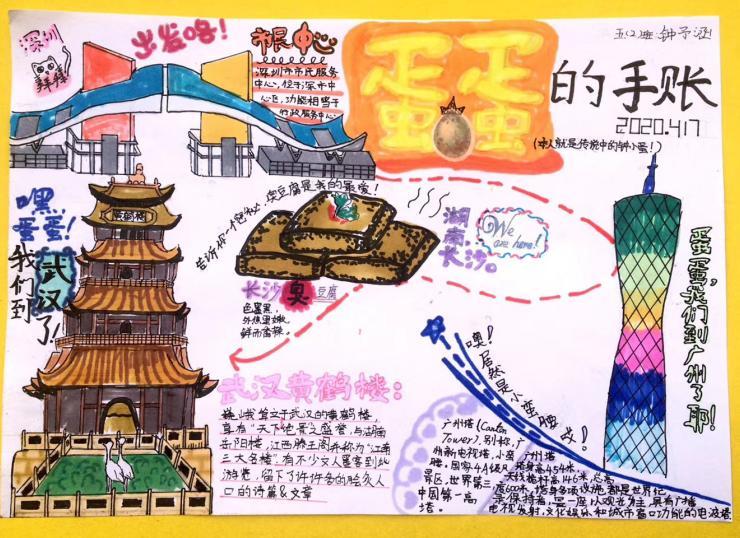 深圳
拜拜
出发咯!
市民中心
深圳市市民服务
中心,位于深市中
心区,功能相当于
市政服务中心
蛋蛋
的手账
2020.4.17
(本人就是传说中的钟小蛋!)
嘿,
蛋蛋!
我们到
武汉了!
告诉你一个秘密,臭豆腐是我的最爱!
长沙臭豆腐
色墨黑,
外焦里嫩,
鲜而香辣。
湖南,
长沙。
We
are here!
蛋蛋,我们到广州了耶!
噢!居然是小蛮腰!
武汉黄鹤楼:
巍峨耸立于武汉的黄鹤楼
享有“天下绝景之盛誉,与湖南
岳阳楼,江西滕王阁并称为“江南
三大名楼”。有不少文人墨客到此
游览,留下了许许多多的脍炙人
口的诗篇&文章
广州塔(Canton
Tower),别称,广
州新电视塔,小蛮
腰,国家4A级风
景区,世界第三,
中国第一高
塔。
广州塔
塔身高454米,
天线桅杆高146米,总高
度600米,塔身多项设施都是世界纪
录保持者,是一座以观光为主,具有广播
电视发射,文化娱乐和城市窗口功能的电波塔